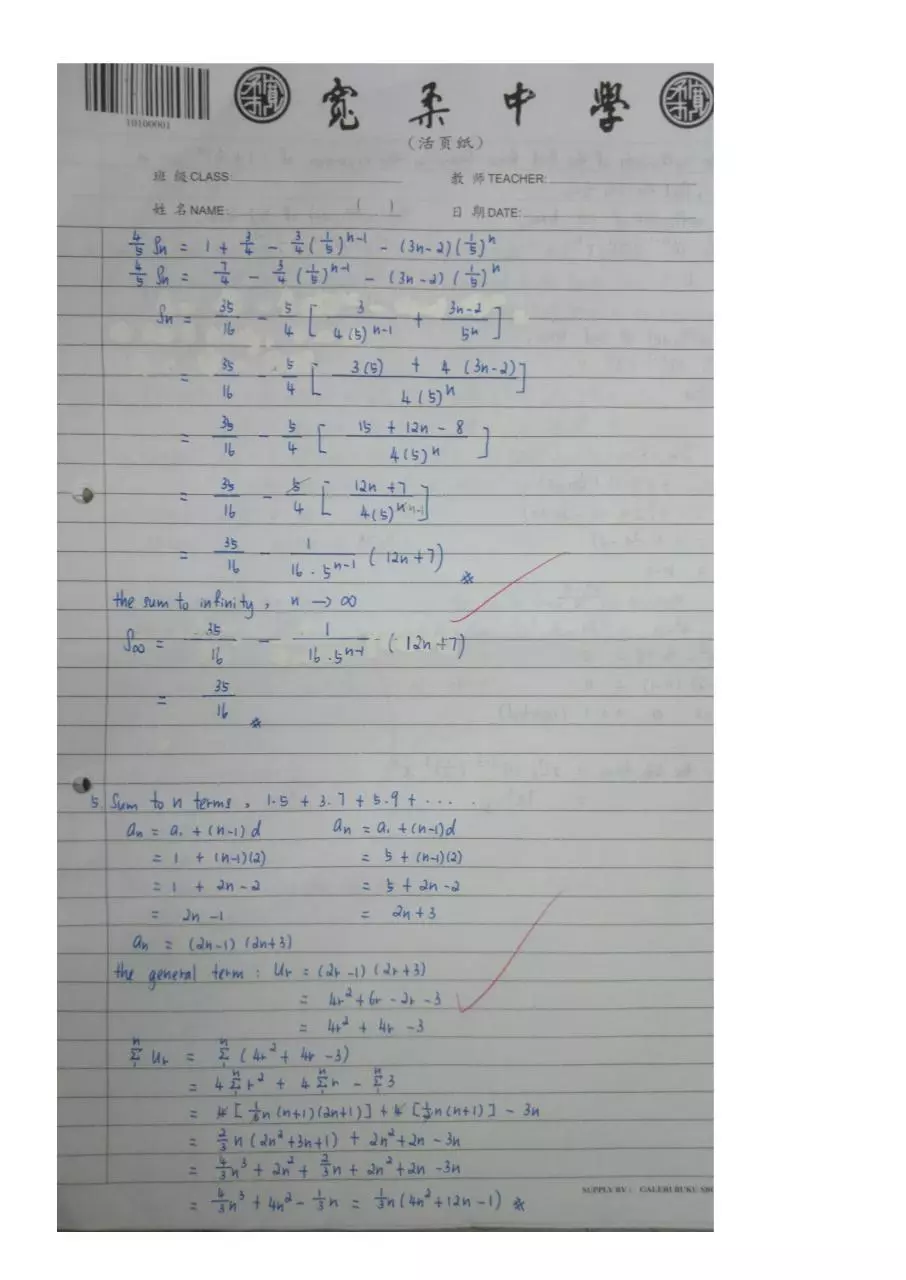 10100001
寬柔中學
(活頁紙)
班級CLASS: 教師TEACHER:
姓名NAME: ( ) 日期DATE:
4/5 Sn = 1 + 3/4 - 3/4 (1/5)^n-1 - (3n-2) (1/5)^n
4/5 Sn = 7/4 - 3/4 (1/5)^n-1 - (3n-2) (1/5)^n
Sn = 35/16 - 5/4 [ 3/4(5)^n-1 + 3n-2/5^n ]
= 35/16 - 5/4 [ 3(5) + 4 (3n-2)/4(5)^n ]
= 35/16 - 5/4 [ 15 + 12n - 8/4(5)^n ]
= 35/16 - 5/4 [ 12n + 7/4(5)^n n-1 ]
= 35/16 - 1/16 · 5^n-1 (12n+7) *
the sum to infinity, n → ∞
S∞ = 35/16 - 1/16 · 5^n-1 (12n+7)
= 35/16 *
5. Sum to n terms, 1·5 + 3·7 + 5·9 + ....
an = a1 + (n-1) d an = a1 + (n-1)d
= 1 + (n-1)(2) = 5 + (n-1)(2)
= 1 + 2n - 2 = 5 + 2n - 2
= 2n - 1 = 2n + 3
an = (2n-1) (2n+3)
the general term : Ur = (2r-1) (2r+3)
= 4r² + 6r - 2r - 3
= 4r² + 4r - 3
n Σ 1 Ur = n Σ 1 (4r² + 4r - 3)
= 4 n Σ 1 r² + 4 n Σ 1 r - n Σ 1 3
= 4 [ 1/6 n (n+1)(2n+1)] + 4 [1/2 n(n+1)] - 3n
= 2/3 n (2n² + 3n + 1) + 2n² + 2n - 3n
= 4/3 n³ + 2n² + 2/3 n + 2n² + 2n - 3n
= 4/3 n³ + 4n² - 1/3 n = 1/3 n (4n² + 12n - 1) *
SUPPLY BY : GALERI BUKU